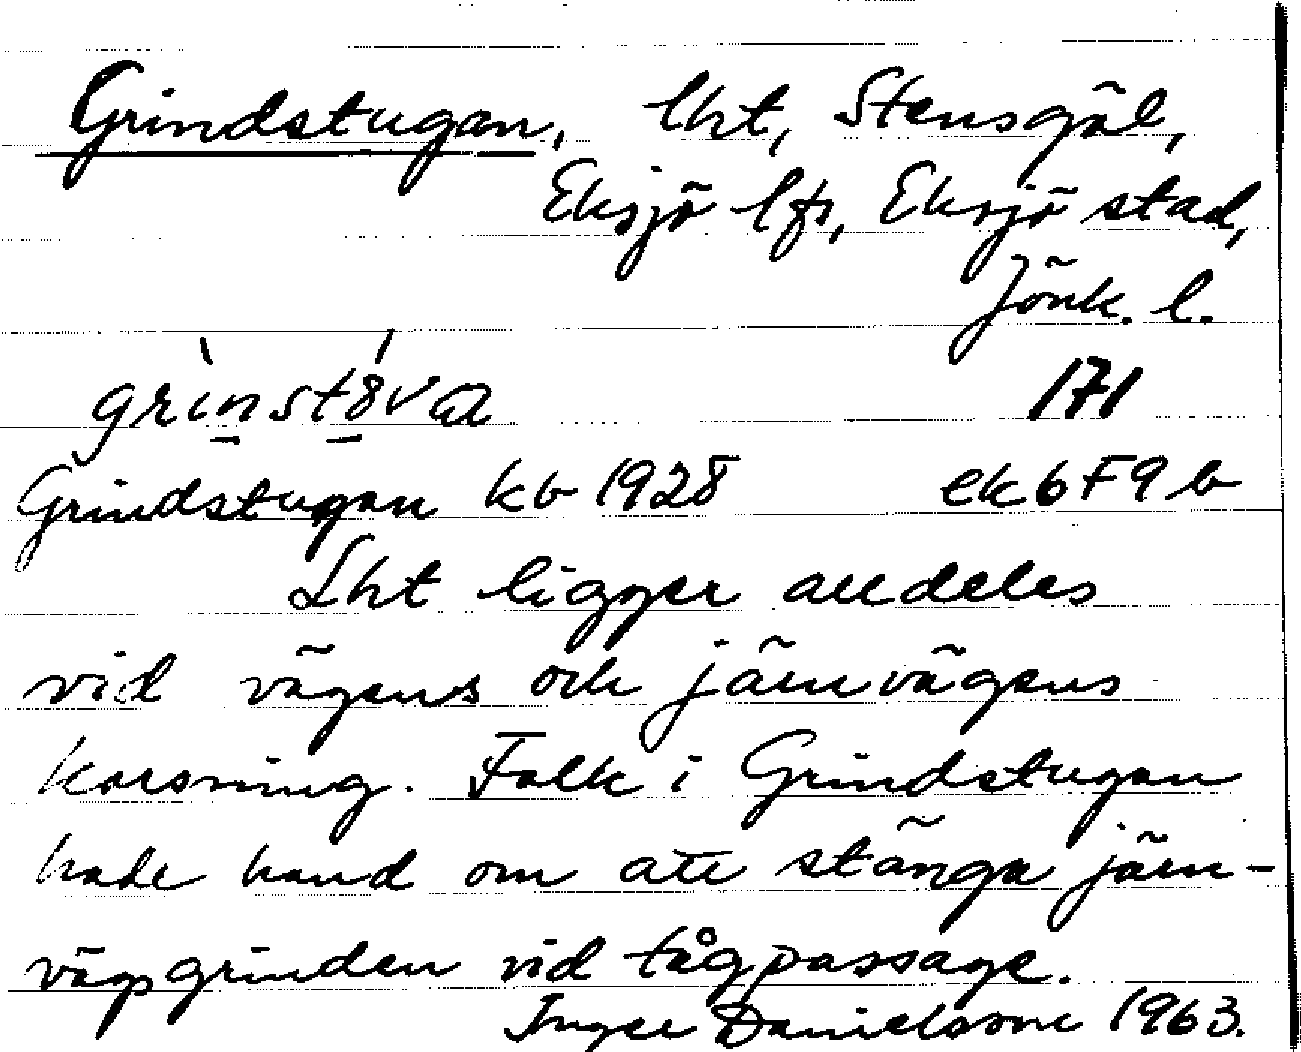 Grindstugan, lht, Stensgöl,
Eksjö lfs, Eksjö stad,
Jönk. l.
grinstöva 171
Grindstugan kb 1928 ek 6F9b
Lht ligger alldeles
vid vägens och järnvägens
korsning. Folk i Grindstugan
hade hand om att stänga järn-
vägsgrinden vid tågpassage.
Inger Danielsson 1963.